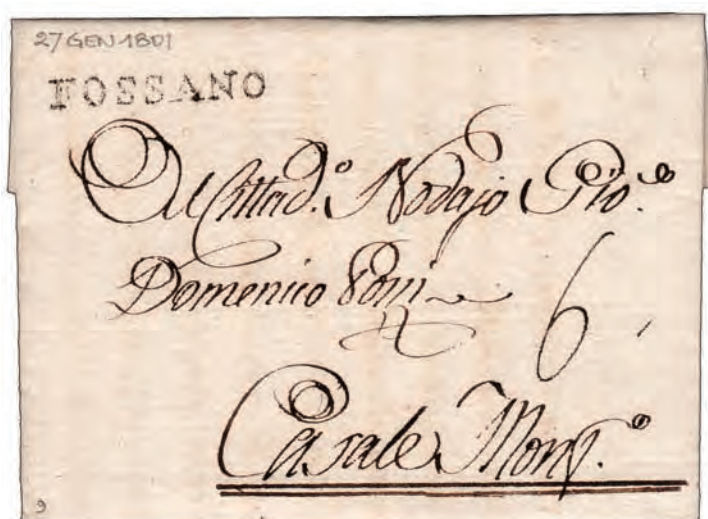 27 GEN 1801
FOSSANO
Al Cittad.º Nodajo Gio.
Domenico
6
Casale Monf.º
9